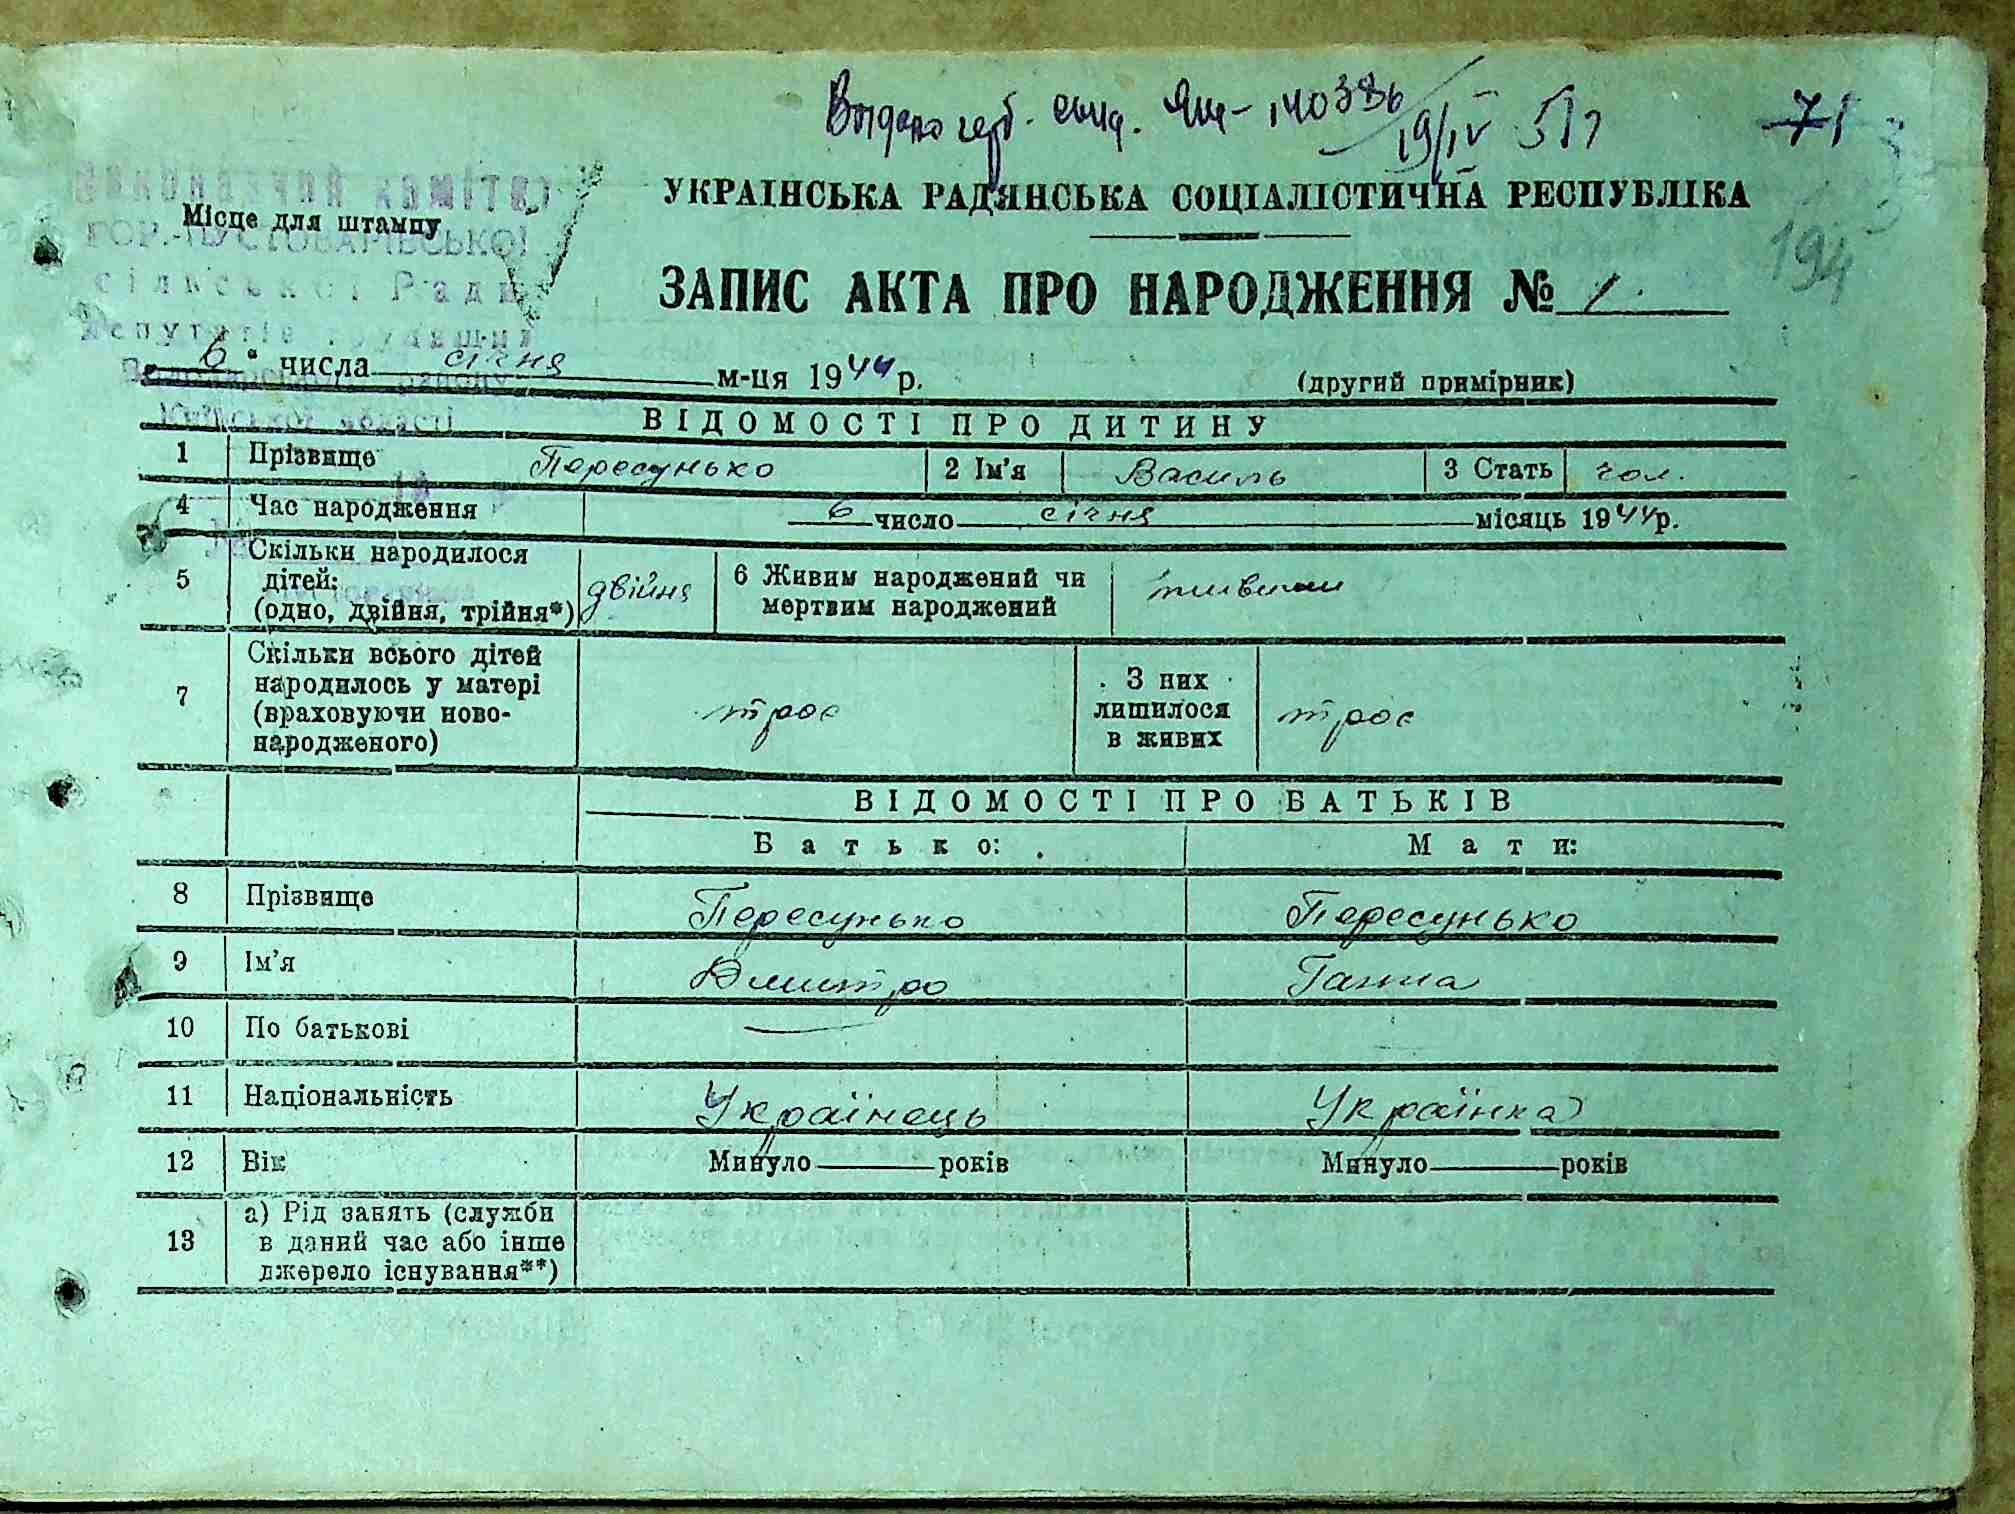 Видано герб. свид. ЯШ-140386 19/IV 51 р
71
УКРАЇНСЬКА РАДЯНСЬКА СОЦІАЛІСТИЧНА РЕСПУБЛІКА
194
Виконавчий комітет
Місце для штампу
ГОР.-ПУСТОВАРІВСЬКОЇ
сільської Ради
депутатів трудящих
ЗАПИС АКТА ПРО НАРОДЖЕННЯ № 1.
6 " числа січня м-ця 1944 р.
(другий примірник)
району
Київської області
ВІДОМОСТІ ПРО ДИТИНУ
1 Прізвище Пересунько 2 Ім'я Василь 3 Стать чол.
4 Час народження 6 число січня місяць 1944 р.
5 Скільки народилося дітей: (одно, двійня, трійня*) двійня 6 Живим народжений чи мертвим народжений живими
7 Скільки всього дітей народилось у матері (враховуючи новонародженого) троє З них лишилося в живих троє
ВІДОМОСТІ ПРО БАТЬКІВ
Батько: Мати:
8 Прізвище Пересунько Пересунько
9 Ім'я Дмитро Ганна
10 По батькові —
11 Національність Українець Українка
12 Вік Минуло років Минуло років
13 а) Рід занять (служби в даний час або інше джерело існування**)